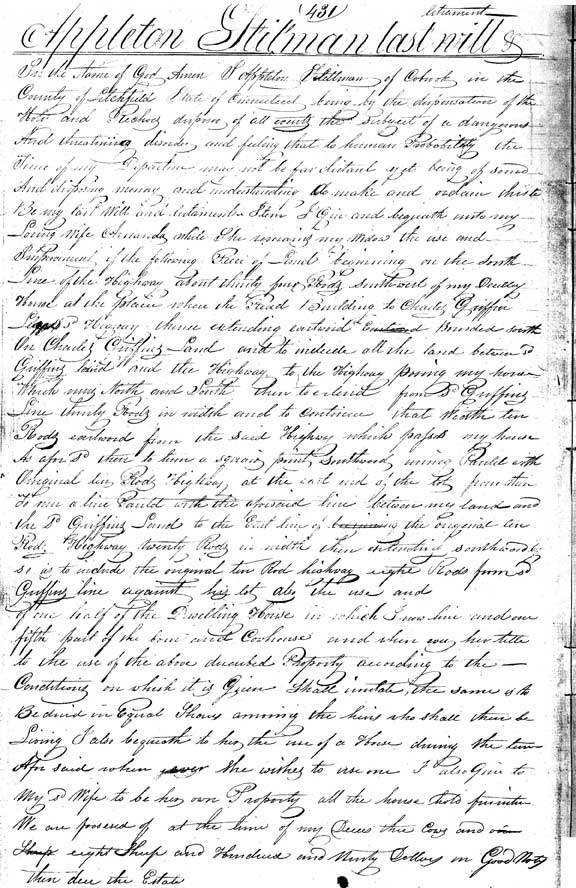 431
testament
Appleton Stilman last will &
In the Name of God Amen I Appleton Stillman of Cobrook in the
County of Litchfield State of Connecticut being by the dispensation of the
and disposer of all the subject of a dangerous
And threatining disorder and feeling that to human Probability the
Time of my Departure may not be far distant yet being of sound
And disposing memory and understanding do make and ordain this to
Be my last Will and testament Item I Give and bequeath unto my
Loving wife Amanda while She remaining my Widow the use and
Improvement of the following Piece of Land beginning on the south
Line of the Highway about thirty four Rods southwest of my Dwelling
House at the place where the Road Building to Charles Griffin
sd Highway thence extending eastward Bounded south
On Charles Griffins Land and to include all the land between sd
Griffins land and the Highway to the Highway passing my house
Which runs North and South then to extend from sd Griffins
Line thirty Rods in width and to continue that Width ten
Rods eastward from the said Highway which passes my house
As afore sd then to turn a square point Southward until with
Original ten Rods Highway at the east end of the lot from then
To run a line Parallel with the aforesaid line between my land and
the sd Griffins Land to the East line of the original ten
Rods Highway twenty Rods in width then extending southwards
so as to include the original ten Rod highway eight Rods from sd
Griffins line against his lot also the use and
of one half of the Dwelling House in which I now live and one
fifth part of the barn and Cowhouse and when ever her title
to the use of the above described Property according to the
Conditions on which it is Given Shall the same is to
Be divid in Equal Shares among the heirs who shall then be
Living I also bequeath to her the use of a Horse during the term
Afor said when ever She wishes to use one I also Give to
My sd Wife to be her own Property all the house hold furniture
We are possessed of at the time of my Deces three Cows and
eight Sheep and Hundred and Ninty Dollars in Good Notes
then due the Estate